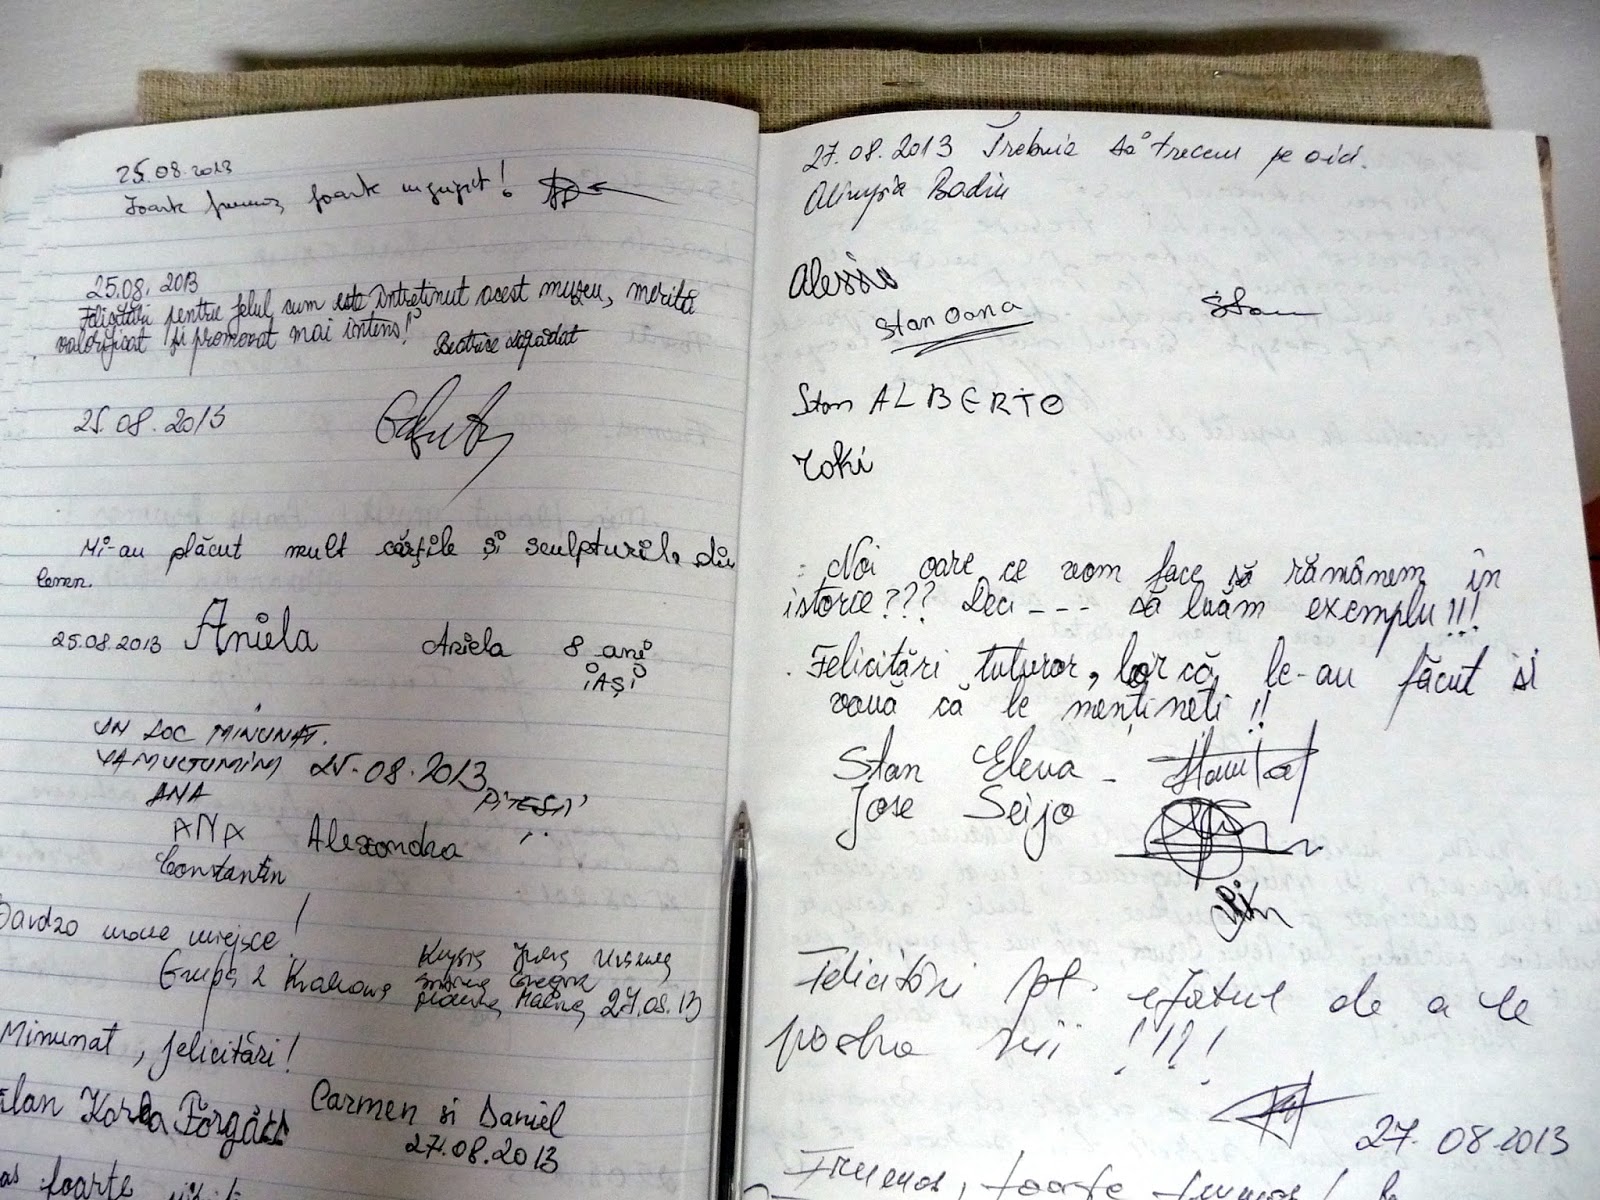 25.08.2013
Foarte frumos, foarte îngrijit!
25.08.2013
Felicitări pentru felul cum este întreținut acest muzeu, merită
valorificat și promovat mai intens!
Beatrice
25.08.2013
Mi-au plăcut mult cărțile și sculpturile din
lemn.
25.08.2013 Aniela Aniela 8 ani
IAȘI
UN LOC MINUNAT.
VA MULTUMIM 25.08.2013
ANA PITESTI
ANA Alexandra
Constantin
Bardzo miejsce!
Grupa z Krakowa
27.08.13
Minunat, felicitări!
Carmen si Daniel
27.08.2013
foarte
27.08.2013 Trebuia să trecem pe aici.
Olimpia Badiu
Alessio
Stan Oana Stan
Stan ALBERTO
Roki
Noi oare ce vom face să rămânem în
istorie??? Deci --- să luăm exemplu!!!
Felicitări tuturor, lor că le-au făcut si
vouă că le mențineti!!
Stan Elena -
Jose Seijo
Felicitări pt. efortul de a le
păstra vii !!!!
27.08.2013
Frumos, foarte frumos!